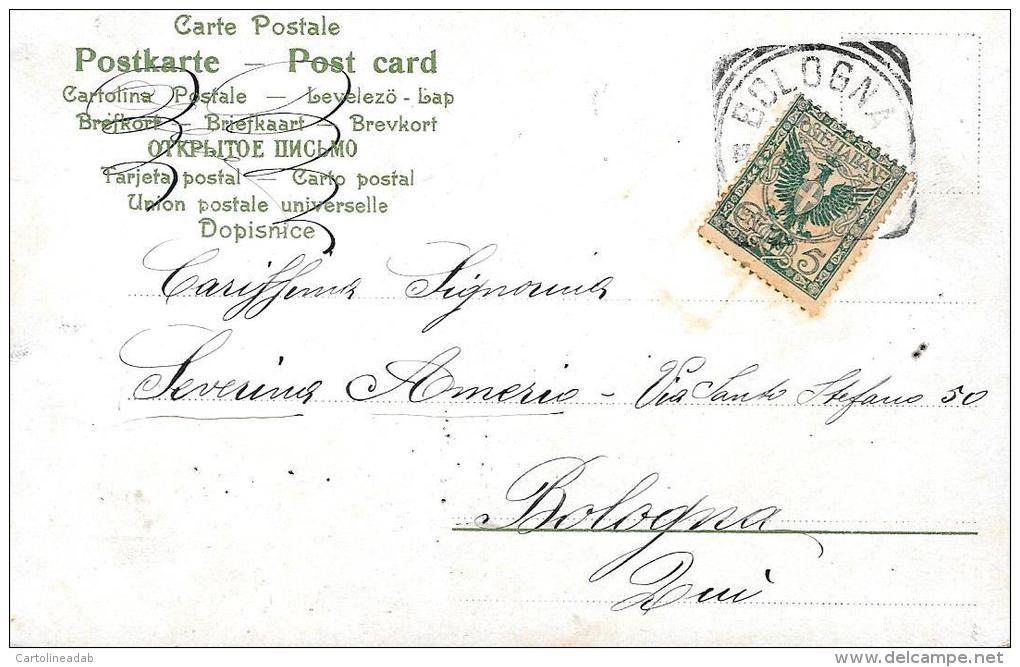 Carte Postale
Postkarte – Post card
Cartolina Postale – Levelezö-Lap
Brefkort – Briefkaart – Brevkort
ОТКРЫТОЕ ПИСЬМО
Tarjeta postal – Carto postal
Union postale universelle
Dopisnice
BOLOGNA
POSTE ITALIANE
CENTESIMI 5
Cariſsima Signorina
Severina Amerio – Via Santo Stefano 50
Bologna
Qui
Cartolineadab
delcampe.net